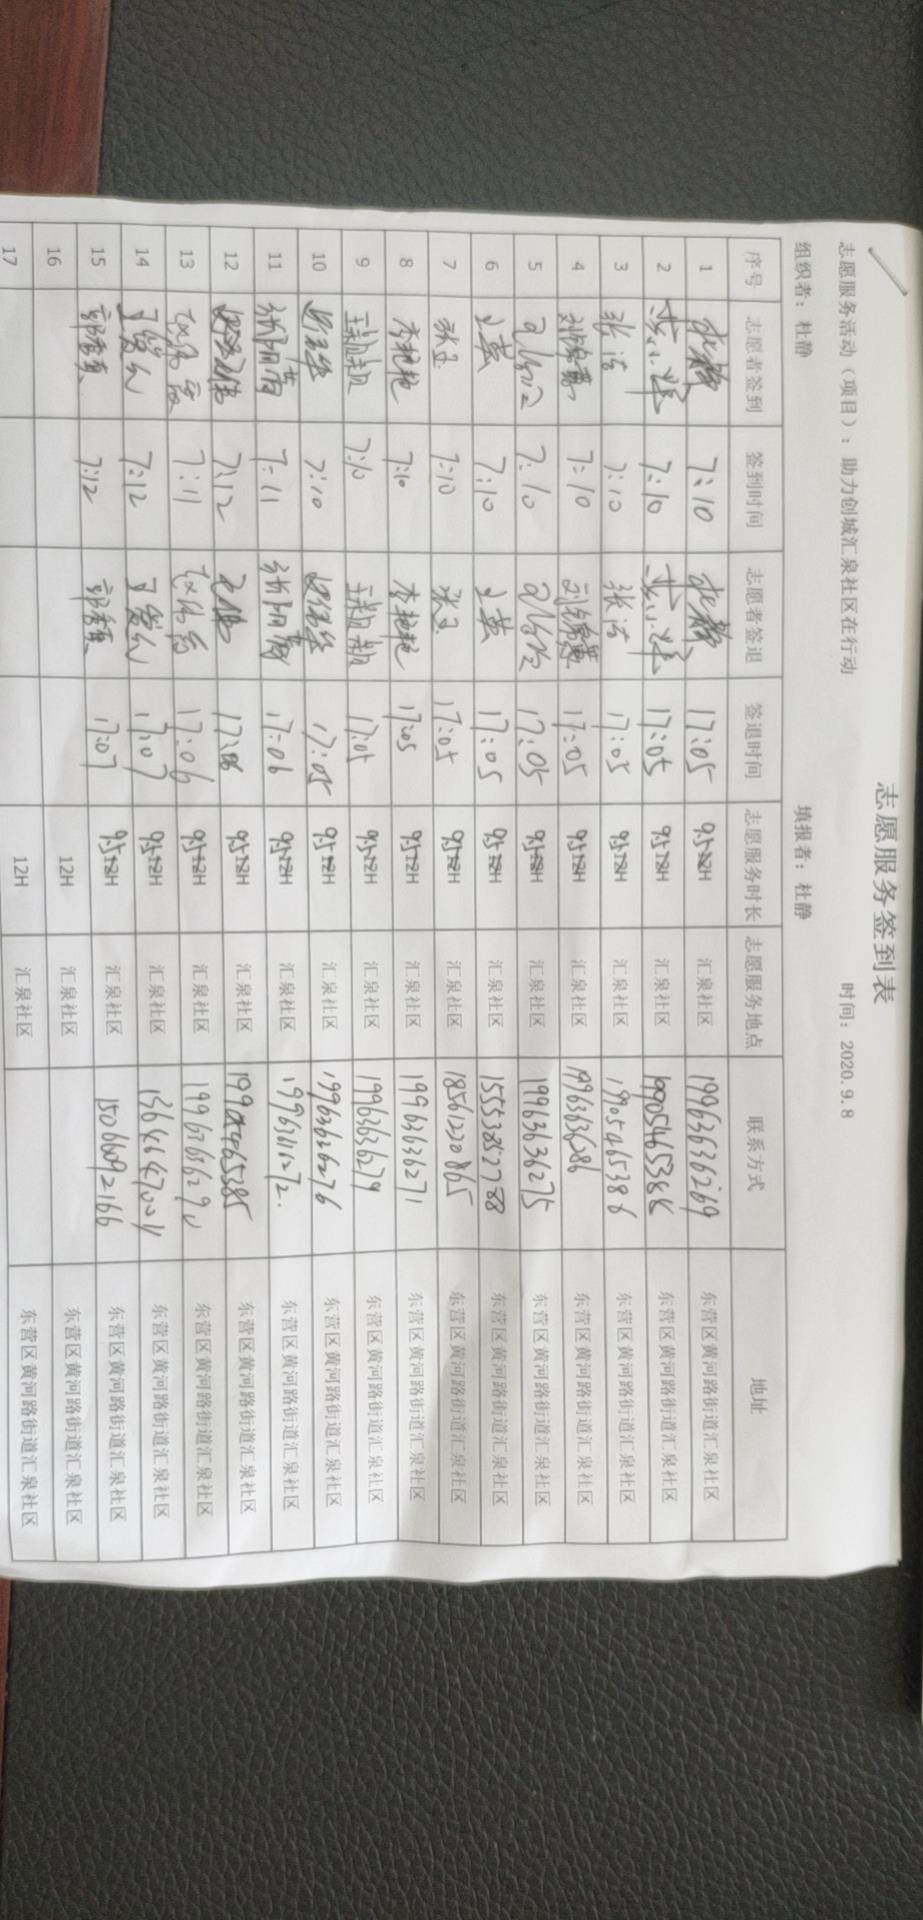 志愿服务签到表
志愿服务活动（项目）：助力创城汇泉社区在行动 时间：2020.9.8
组织者：杜静 填报者：杜静
序号 志愿者签到 签到时间 志愿者签退 签退时间 志愿服务时长 志愿服务地点 联系方式 地址
1 杜静 7:10 杜静 17:05 9.5 12H 汇泉社区 19963636269 东营区黄河路街道汇泉社区
2 7:10 17:05 9.5 12H 汇泉社区 东营区黄河路街道汇泉社区
3 张洁 7:10 张洁 17:05 9.5 12H 汇泉社区 19905465386 东营区黄河路街道汇泉社区
4 7:10 17:05 9.5 12H 汇泉社区 19963636286 东营区黄河路街道汇泉社区
5 7:10 17:05 9.5 12H 汇泉社区 19963636275 东营区黄河路街道汇泉社区
6 王燕 7:10 王燕 17:05 9.5 12H 汇泉社区 15553852788 东营区黄河路街道汇泉社区
7 张玉 7:10 张玉 17:05 9.5 12H 汇泉社区 18561230865 东营区黄河路街道汇泉社区
8 李艳艳 7:10 李艳艳 17:05 9.5 12H 汇泉社区 19963636271 东营区黄河路街道汇泉社区
9 7:10 17:05 9.5 12H 汇泉社区 19963636279 东营区黄河路街道汇泉社区
10 7:10 17:05 9.5 12H 汇泉社区 19963636276 东营区黄河路街道汇泉社区
11 7:11 17:06 9.5 12H 汇泉社区 东营区黄河路街道汇泉社区
12 7:12 17:06 9.5 12H 汇泉社区 19905465385 东营区黄河路街道汇泉社区
13 7:11 17:06 9.5 12H 汇泉社区 东营区黄河路街道汇泉社区
14 7:12 17:07 9.5 12H 汇泉社区 东营区黄河路街道汇泉社区
15 7:12 17:07 9.5 12H 汇泉社区 15066092166 东营区黄河路街道汇泉社区
16 12H 汇泉社区 东营区黄河路街道汇泉社区
17 12H 汇泉社区 东营区黄河路街道汇泉社区